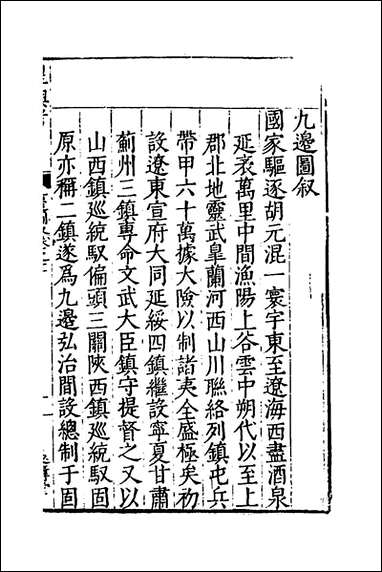 九邊圖叙
國家驅逐胡元混一寰宇東至遼海西盡酒泉
延袤萬里中間漁陽上谷雲中朔代以至上
郡北地靈武皐蘭河西山川聯絡列鎮屯兵
帶甲六十萬據大險以制諸夷全盛極矣初
設遼東宣府大同延綏四鎮繼設寧夏甘肅
薊州三鎮専命文武大臣鎮守提督之又以
山西鎮廵統馭偏頭三關陝西鎮廵統馭固
原亦稱二鎮遂爲九邊弘治間設總制于固